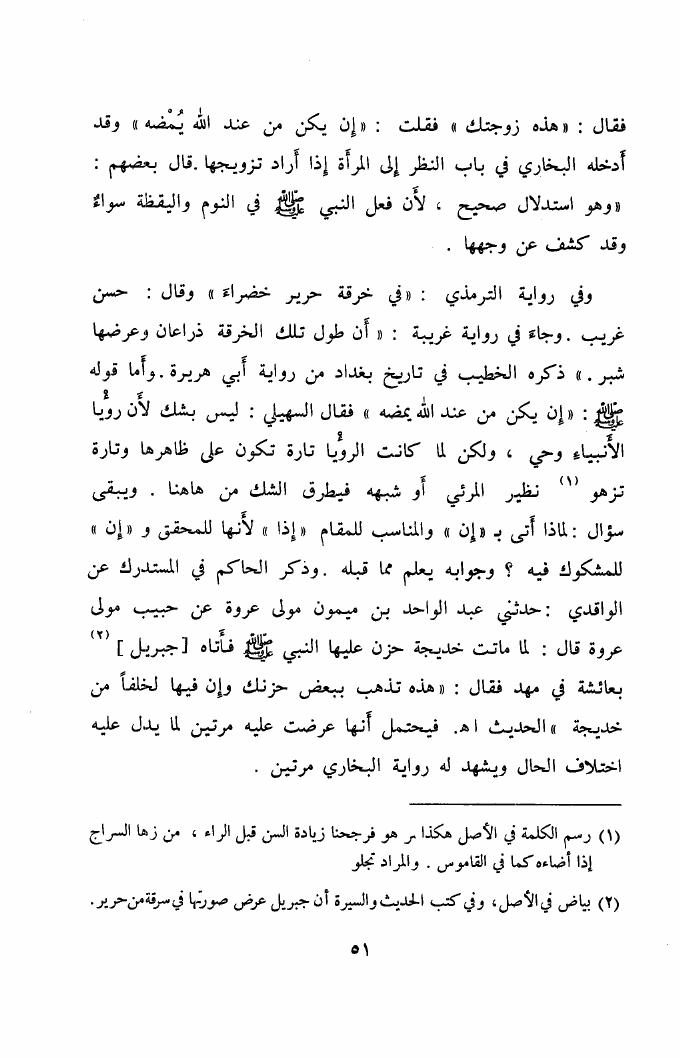 فقال : «هذه زوجتك » فقلت : «إن يكن من عند الله يُمْضه » وقد
أدخله البخاري في باب النظر إلى المرأة إذا أراد تزويجها .قال بعضهم :
«وهو استدلال صحيح ، لأن فعل النبي ﷺ في النوم واليقظة سواءٌ
وقد كشف عن وجهها .
وفي رواية الترمذي : «في خرقة حرير خضراء » وقال : حسن
غريب .وجاءَ في رواية غريبة : « أن طول تلك الخرقة ذراعان وعرضها
شبر .» ذكره الخطيب في تاريخ بغداد من رواية أبي هريرة .وأما قوله
ﷺ : «إن يكن من عند الله يمضه » فقال السهيلي : ليس بشك لأن رؤْيا
الأنبياءِ وحي ، ولكن لما كانت الرؤْيا تارة تكون على ظاهرها وتارة
تزهو (١) نظير المرئي أو شبهه فيطرق الشك من هاهنا . ويبقى
سؤال :لماذا أتى بـ «إن » والمناسب للمقام «إذا » لأنها للمحقق و «إن »
للمشكوك فيه ؟ وجوابه يعلم مما قبله .وذكر الحاكم في المستدرك عن
الواقدي :حدثني عبد الواحد بن ميمون مولى عروة عن حبيب مولى
عروة قال : لما ماتت خديجة حزن عليها النبي ﷺ فأتاه [جبريل ] (٢)
بعائشة في مهد فقال : «هذه تذهب ببعض حزنك وإن فيها لخلفاً من
خديجة »الحديث اهـ. فيحتمل أنها عرضت عليه مرتين لما يدل عليه
اختلاف الحال ويشهد له رواية البخاري مرتين .
(١) رسم الكلمة في الأصل هكذا هو فرجحنا زيادة السن قبل الراء ، من زها السراج
إذا أضاءه كما في القاموس . والمراد تجلو
(٢) بياض في الأصل، وفي كتب الحديث والسيرة أن جبريل عرض صورتها في سرقة من حرير .
٥١